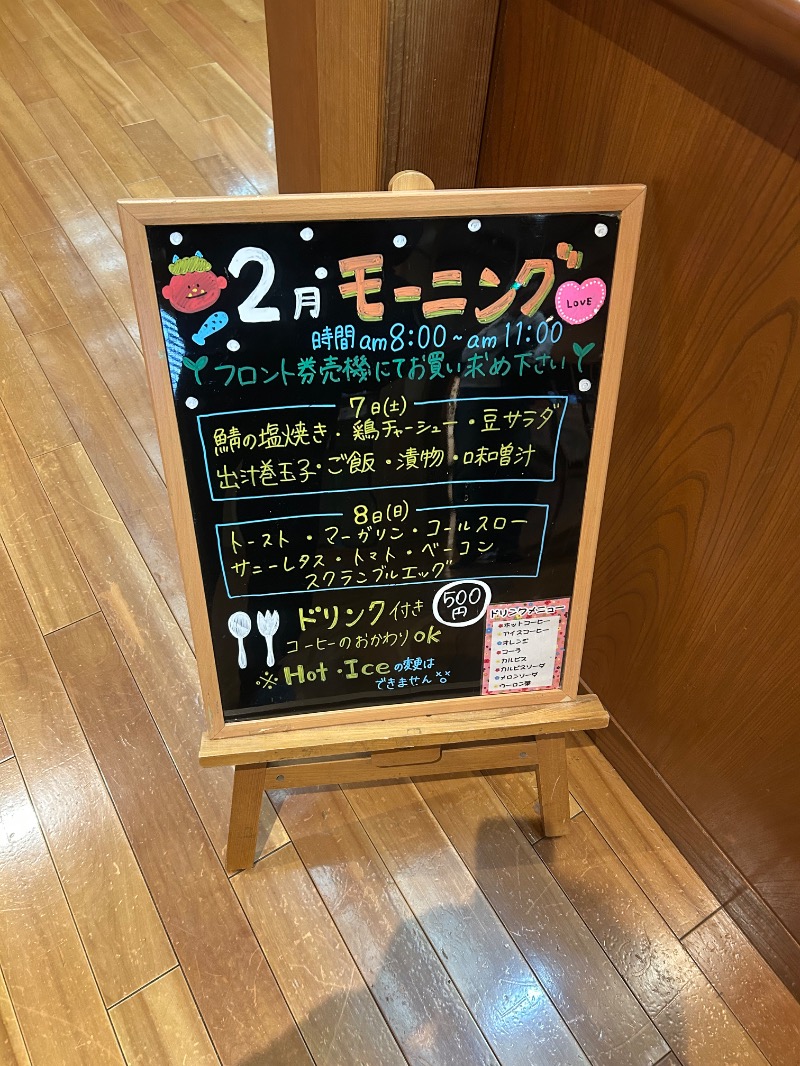 2月モーニング
LOVE
時間am8:00~am11:00
フロント券売機にてお買い求め下さい
7日(土)
鯖の塩焼き・鶏チャーシュー・豆サラダ
出汁巻玉子・ご飯・漬物・味噌汁
8日(日)
トースト・マーガリン・コールスロー
サニーレタス・トマト・ベーコン
スクランブルエッグ
ドリンク付き
500円
コーヒーのおかわりok
※Hot・Iceの変更は
できません
ドリンクメニュー
ホットコーヒー
アイスコーヒー
オレンジ
コーラ
カルピス
カルピスソーダ
メロンソーダ
ウーロン茶